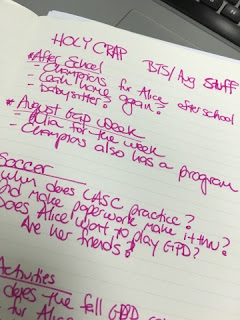 HOLY CRAP BTS/Aug Stuff
*After School
- Champions for Alice afterschool
- home again?
- Babysitter?
* August Week
- Julia for the week
- Champions also has a program
Soccer
when does CASC practice?
Did paperwork make it thru?
Does Alice want to play GPD?
Are her friends?
Activities
does the fall
for Alice